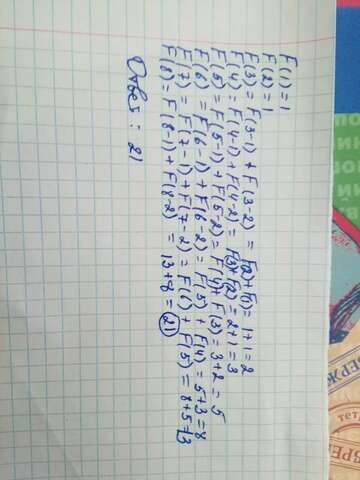 F(1)=1
F(2)=1
F(3)=F(3-1)+F(3-2) = F(2)+F(1)=1+1=2
F(4)=F(4-1)+F(4-2)= F(3)+F(2)=2+1=3
F(5)=F(5-1)+F(5-2)=F(4)+F(3)=3+2=5
F(6)=F(6-1)+F(6-2)=F(5)+F(4)=5+3=8
F(7)=F(7-1)+F(7-2)=F(6)+F(5)=8+5=13
F(8)=F(8-1)+F(8-2) = 13+8=21
Ответ: 21